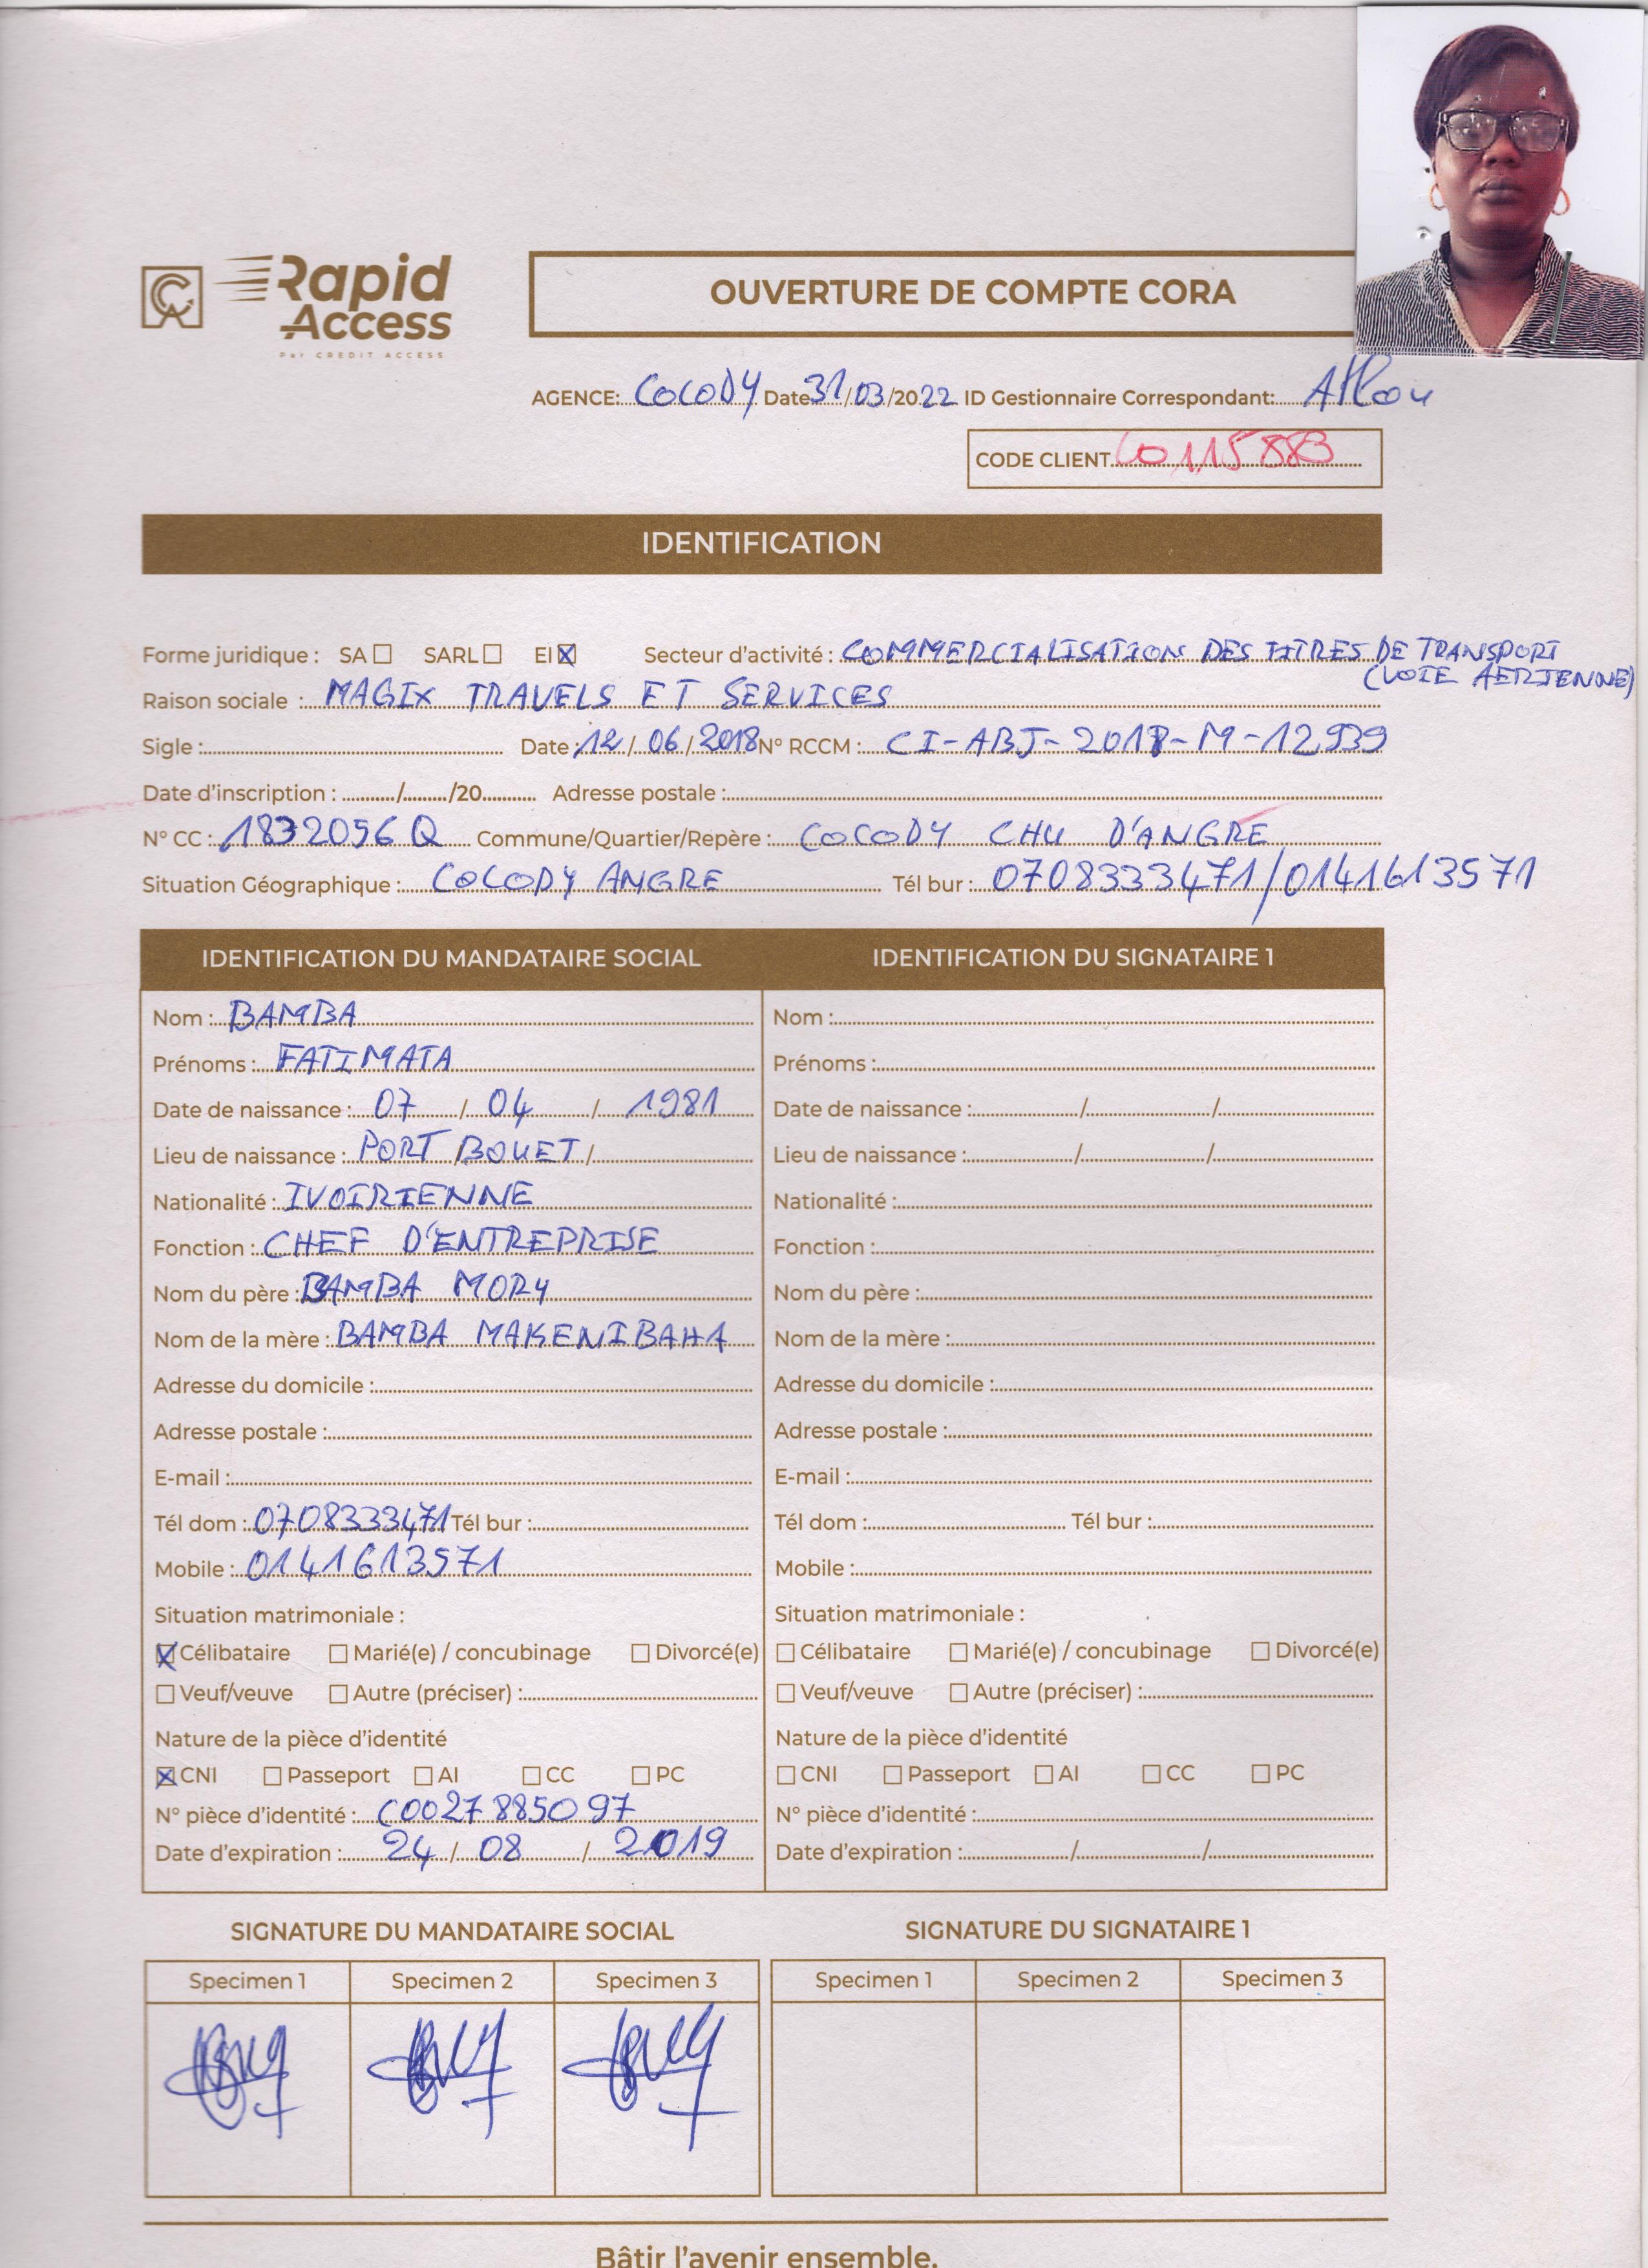 Rapid
Access
Par CREDIT ACCESS
OUVERTURE DE COMPTE CORA
AGENCE: COCODY Date 31/03/2022 ID Gestionnaire Correspondant:
CODE CLIENT C0115883
IDENTIFICATION
Forme juridique : SA ☐ SARL ☐ EI ☒ Secteur d'activité : COMMERCIALISATION DES TITRES DE TRANSPORT
(VOIE AERIENNE)
Raison sociale : MAGIX TRAVELS ET SERVICES
Sigle : Date : 12/06/2018 N° RCCM : CI-ABJ-2018-M-12939
Date d'inscription : / /20 Adresse postale :
N° CC : 1832056 Q Commune/Quartier/Repère : COCODY CHU D'ANGRE
Situation Géographique : COCODY ANGRE Tél bur : 0708333471/0141613571
IDENTIFICATION DU MANDATAIRE SOCIAL
Nom : BAMBA
Prénoms : FATIMATA
Date de naissance : 07 / 04 / 1981
Lieu de naissance : PORT BOUET /
Nationalité : IVOIRIENNE
Fonction : CHEF D'ENTREPRISE
Nom du père : BAMBA MORY
Nom de la mère : BAMBA MAKENIBAHA
Adresse du domicile :
Adresse postale :
E-mail :
Tél dom : 0708333471 Tél bur :
Mobile : 0141613571
Situation matrimoniale :
☒ Célibataire ☐ Marié(e) / concubinage ☐ Divorcé(e)
☐ Veuf/veuve ☐ Autre (préciser) :
Nature de la pièce d'identité
☒ CNI ☐ Passeport ☐ AI ☐ CC ☐ PC
N° pièce d'identité : C0027885097
Date d'expiration : 24 / 08 / 2019
IDENTIFICATION DU SIGNATAIRE 1
Nom :
Prénoms :
Date de naissance : / /
Lieu de naissance : / /
Nationalité :
Fonction :
Nom du père :
Nom de la mère :
Adresse du domicile :
Adresse postale :
E-mail :
Tél dom : Tél bur :
Mobile :
Situation matrimoniale :
☐ Célibataire ☐ Marié(e) / concubinage ☐ Divorcé(e)
☐ Veuf/veuve ☐ Autre (préciser) :
Nature de la pièce d'identité
☐ CNI ☐ Passeport ☐ AI ☐ CC ☐ PC
N° pièce d'identité :
Date d'expiration : / /
SIGNATURE DU MANDATAIRE SOCIAL
Specimen 1 Specimen 2 Specimen 3
SIGNATURE DU SIGNATAIRE 1
Specimen 1 Specimen 2 Specimen 3
Bâtir l'avenir ensemble.